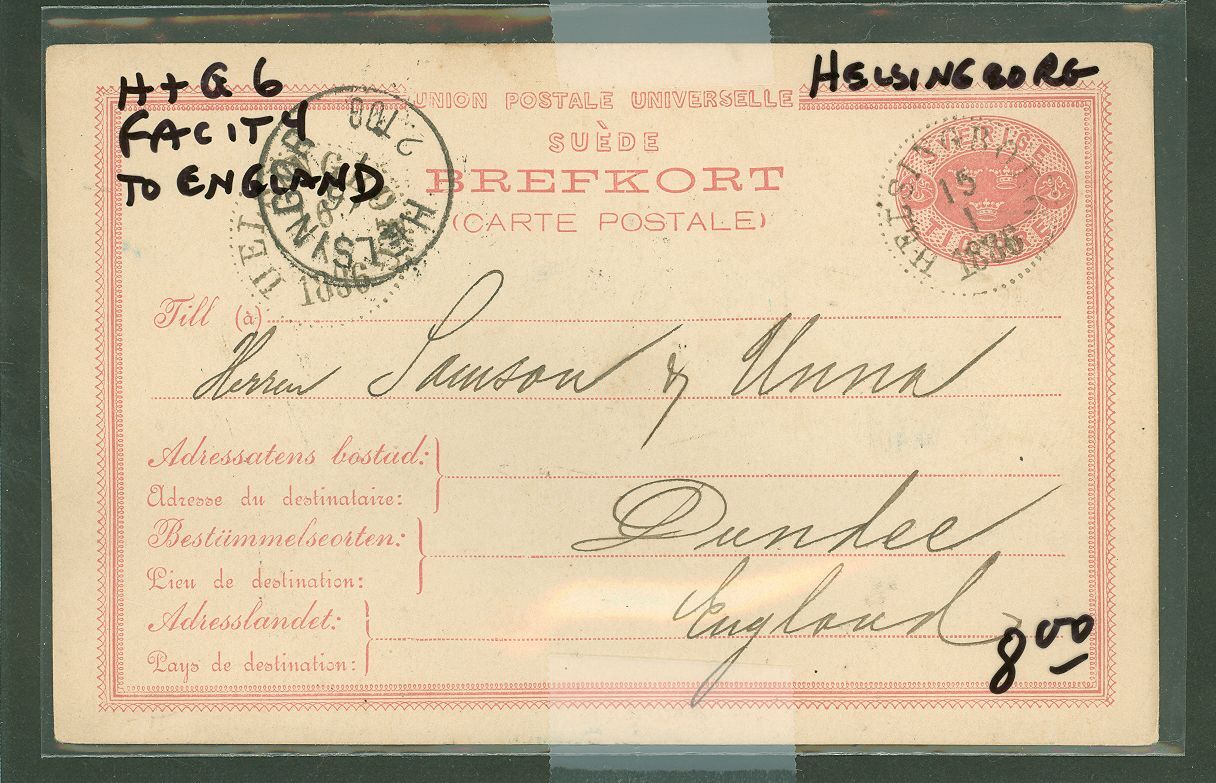 H + G 6
FACIT 4
TO ENGLAND
HELSINGBORG
UNION POSTALE UNIVERSELLE
SUÈDE
BREFKORT
(CARTE POSTALE)
HELSINGØR
2 TOG
HEL
1886
SVERIGE
TIO ÖRE
HELSINGB
15
1
1886
Till (à)
Herren Samson & Unna
Adressatens bostad:
Adresse du destinataire:
Dundee
Bestämmelseorten:
Lieu de destination:
England
Adresslandet:
Pays de destination:
8 00